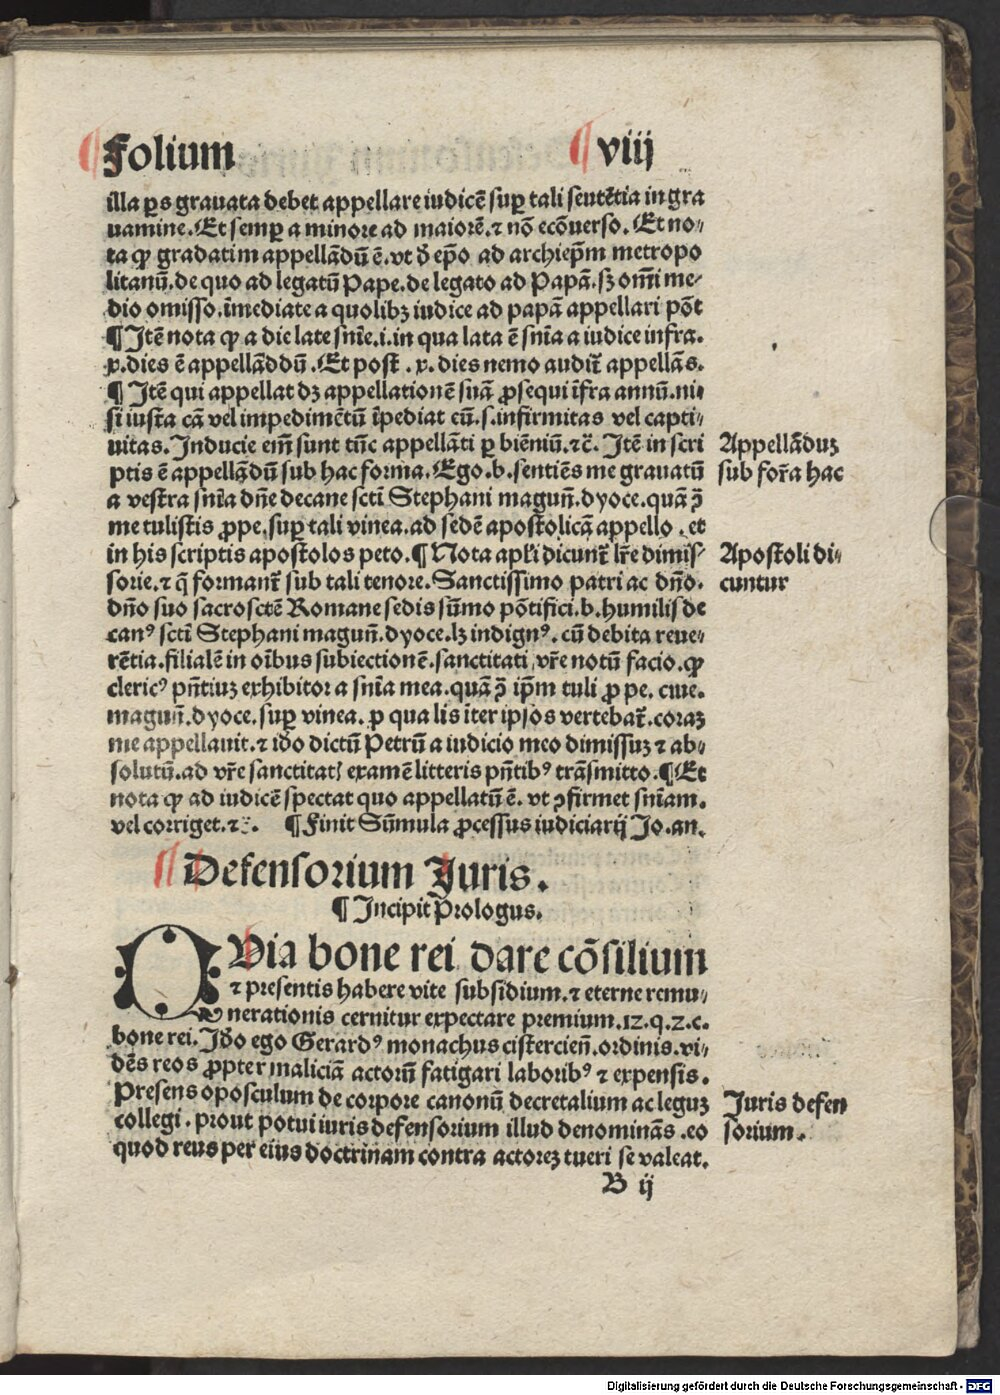 ¶ Folium ¶ viij
illa ꝑs grauata debet appellare iudicē suꝑ tali sentētia in gra
uamine. Et semꝑ a minore ad maiorē. ⁊ nō ecōuerso. Et no⸗
ta ꝙ gradatim appellādū ē. vt ð epō ad archiep̄m metropo
litanū. de quo ad legatū Pape. de legato ad Papā. sꝫ om̄i me⸗
dio omisso. īmediate a quolibꝫ iudice ad papā appellari pōt
¶ Itē nota ꝙ a die late snīe .i. in qua lata ē snīa a iudice infra.
x. dies ē appellādū. Et post .x. dies nemo audit̄ appellās.
¶ Itē qui appellat dꝫ appellationē suā ꝓsequi īfra annū. ni⸗
si iusta cā vel impedimētū īpediat eū .s. infirmitas vel capti⸗
uitas. Inducie em̄ sunt tūc appellāti ꝑ biēniū. ⁊c̄. Itē in scri
ptis ē appellādū sub hac forma. Ego .b. sentiēs me grauatū
a vestra snīa dn̄e decane sct̄i Stephani magun̄. dyoce. quā ꝯ̄
me tulistis ꝓpe. suꝑ tali vinea. ad sedē apostolicā appello . et
in his scriptis apostolos peto. ¶ Nota apl̄i dicunt̄ lr̄e dimis⸗
sorie. ⁊ q̄ formant̄ sub tali tenore. Sanctissimo patri ac dn̄o.
dn̄o suo sacrosctē Romane sedis sūmo pōtifici .b. humilis de
canꝰ sct̄i Stephani magun̄. dyoce. lꝫ indignꝰ. cū debita reue⸗
rētia. filialē in oībus subiectionē. sanctitati vr̄e notū facio. ꝙ
clericꝰ pn̄tiuꝫ exhibitor a snīa mea. quā ꝯ̄ ip̄m tuli ꝓ pe. ciue.
magun̄. dyoce. suꝑ vinea. ꝑ qua lis iter ipsos vertebat̄. coraꝫ
me appellauit. ⁊ iðo dictū Petrū a iudicio meo dimissuꝫ ⁊ ab⸗
solutū. ad vr̄e sanctitatꝭ examē litteris pn̄tibꝰ trāsmitto. ¶ Et
nota ꝙ ad iudicē spectat quo appellatū ē. vt ꝯfirmet snīam.
vel corriget. ⁊c̄. ¶ Finit Sūmula ꝓcessus iudiciarij Jo. an.
Appellāduꝫ
sub for̄a hac
Apostoli di⸗
cuntur
¶ Defensorium Juris.
¶ Incipit Prologus.
QVia bone rei dare cōsilium
⁊ presentis habere vite subsidium. ⁊ eterne remu⸗
nerationis cernitur expectare premium. 12. q. 2. c.
bone rei. Iðo ego Gerardꝰ monachus cistercien̄. ordinis. vi⸗
dēs reos ꝓpter maliciā actorū fatigari laboribꝰ ⁊ expensis.
Presens oposculum de corpore canonū decretalium ac leguꝫ
collegi. prout potui iuris defensorium illud denominās. eo
quod reus per eius doctrinam contra actoreꝫ tueri se valeat.
Juris defen
sorium.
B ij
Digitalisierung gefördert durch die Deutsche Forschungsgemeinschaft - DFG